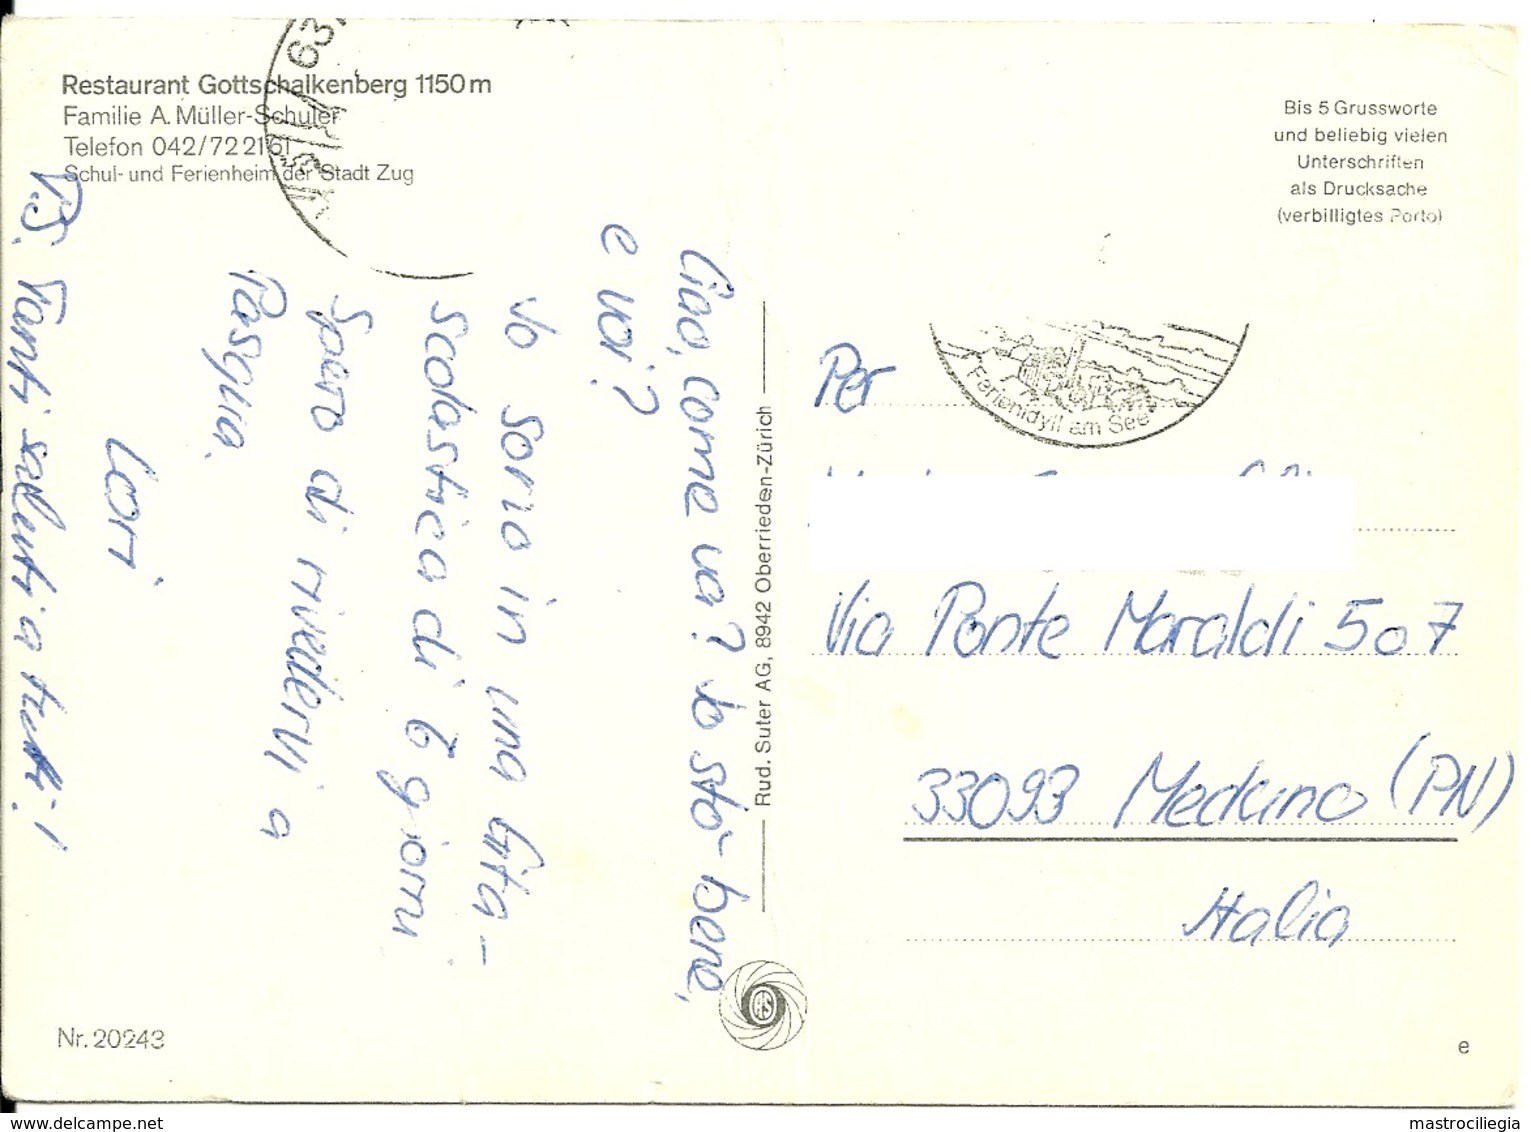 Restaurant Gottschalkenberg 1150 m
Familie A. Müller-Schuler
Telefon 042/72 21 61
Schul- und Ferienheim der Stadt Zug
63
Bis 5 Grussworte
und beliebig vielen
Unterschriften
als Drucksache
(verbilligtes Porto)
Ciao, come va? Io sto bene,
e voi?
Io sono in una gita-
scolastica di 6 giorni
Spero di rivedervi a
Pasqua.
Lori
P.S. Tanti saluti a tutti!
Rud. Suter AG, 8942 Oberrieden-Zürich
RS
Ferienidyll am See
Per
Via Ponte Maraldi 507
33093 Meduno (PN)
Italia
Nr. 20243
e
www.delcampe.net
mastrociliegia